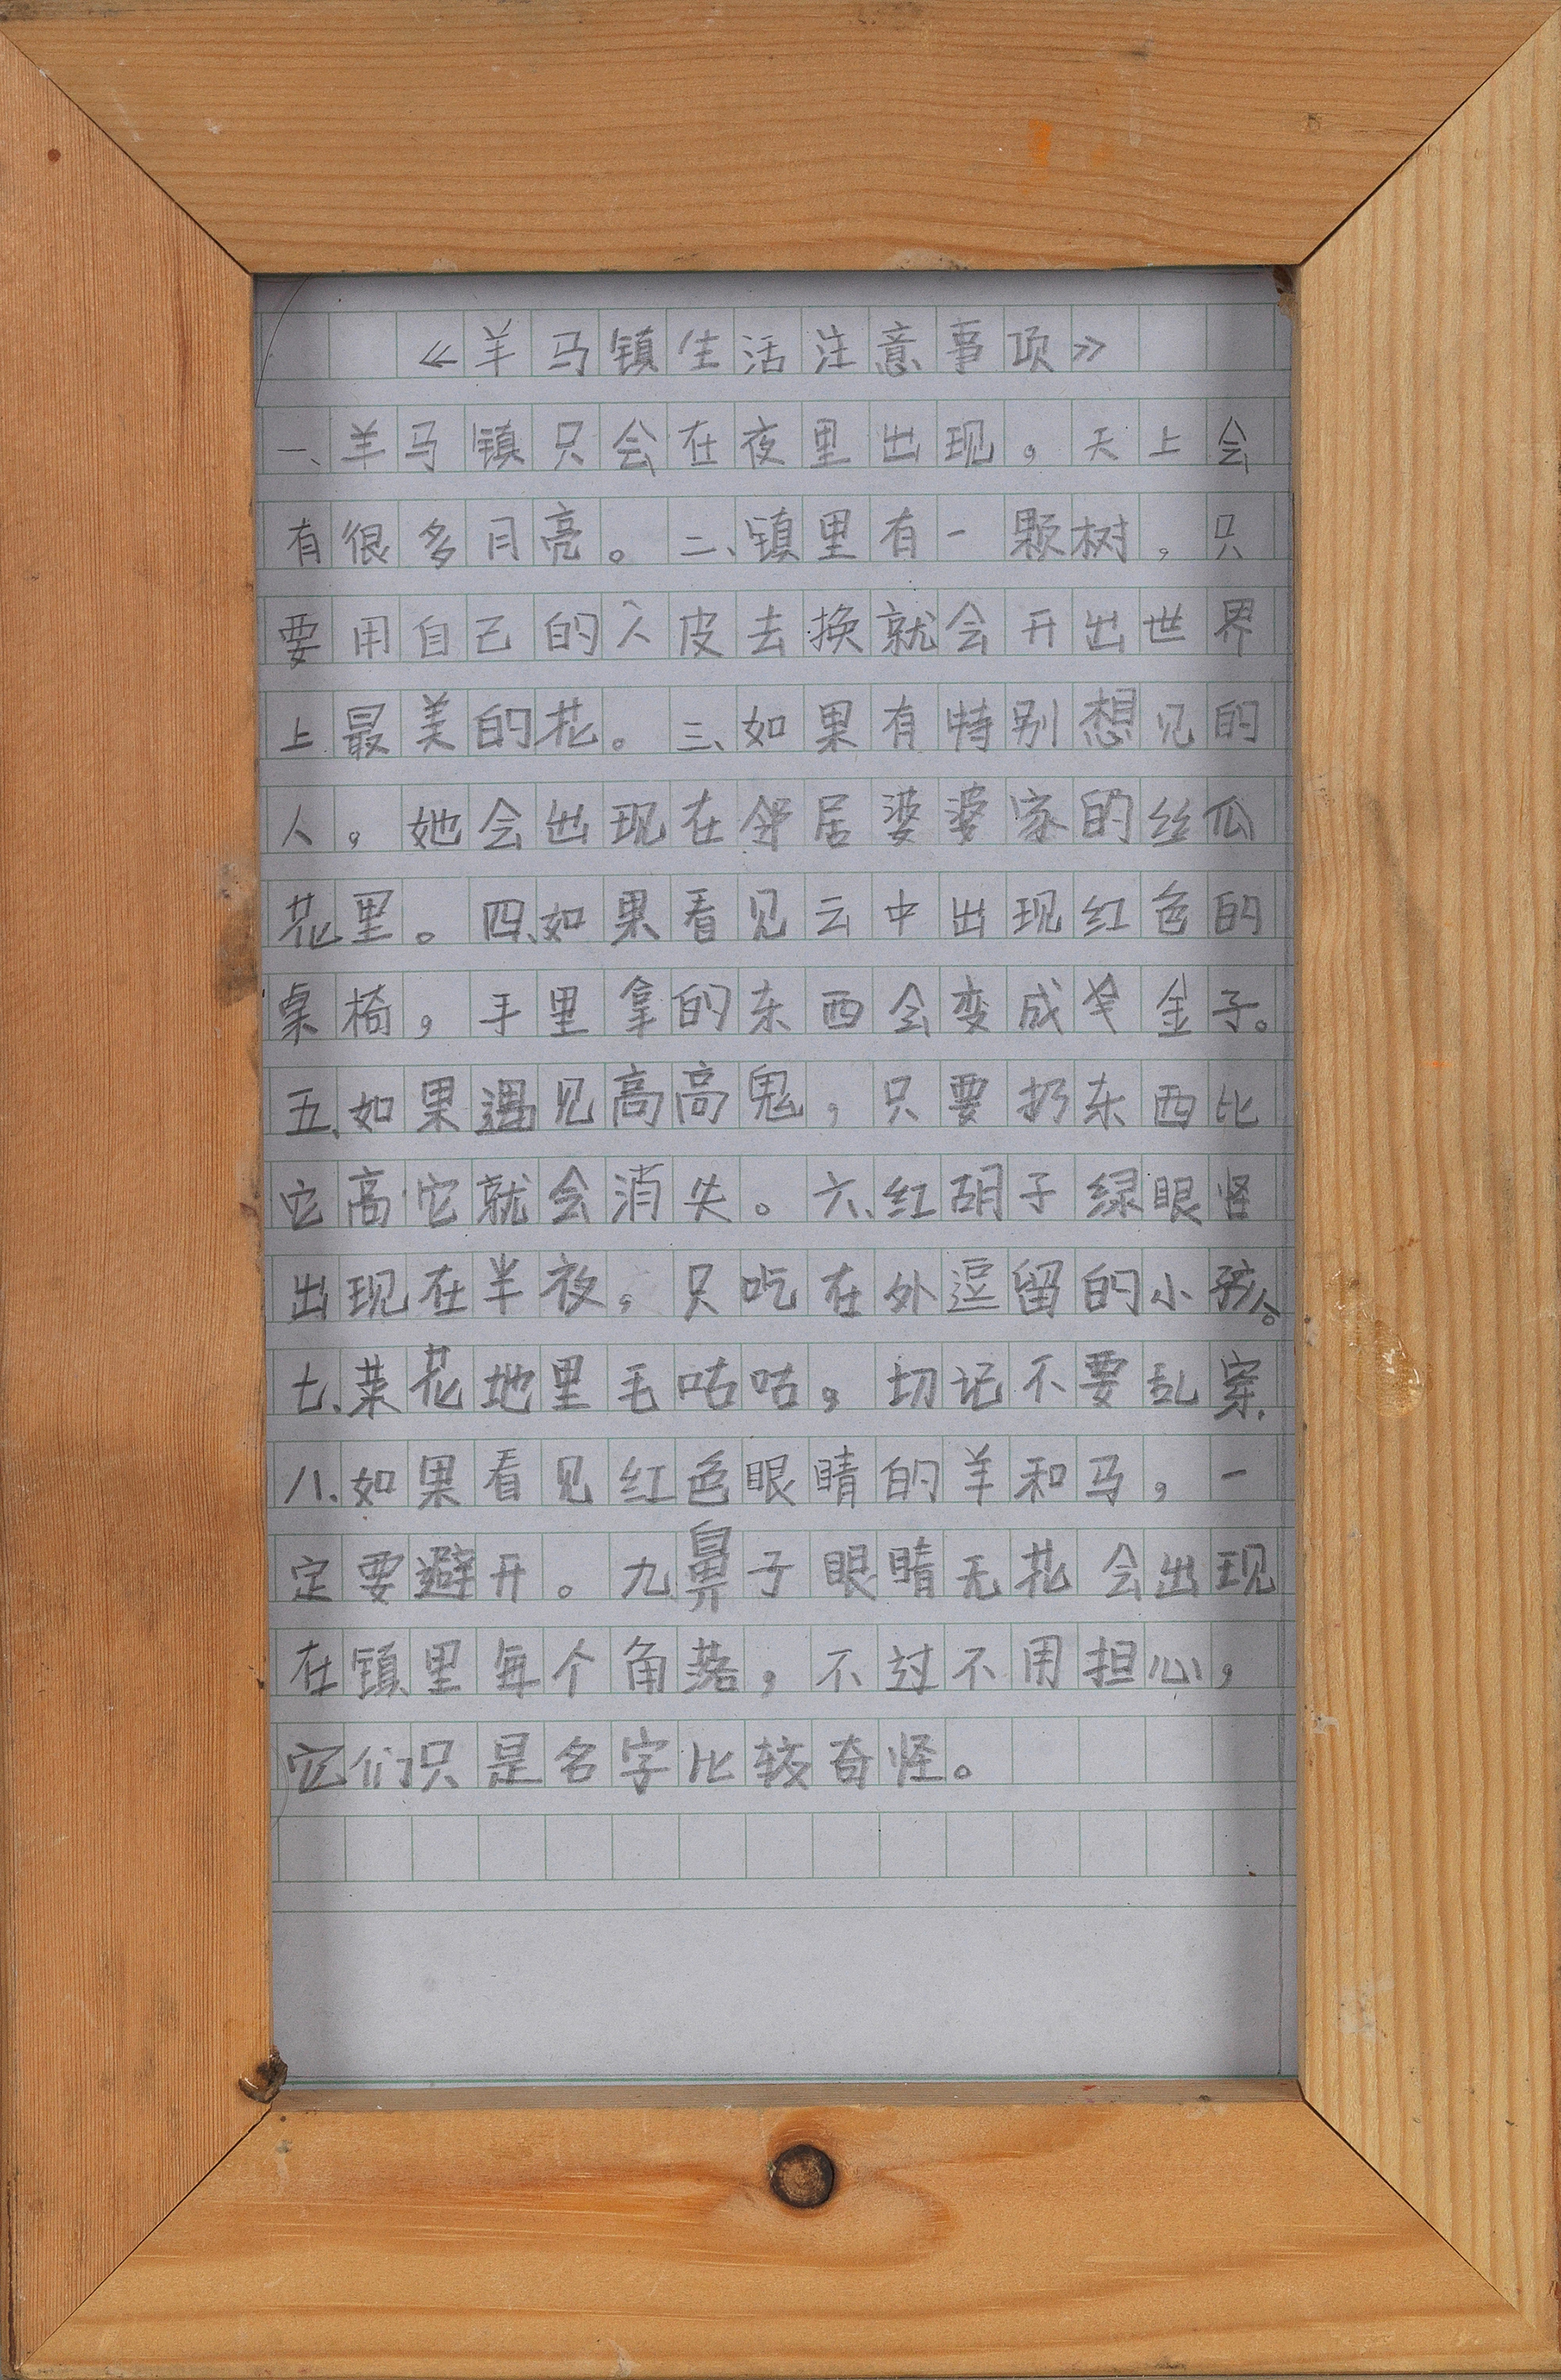 《羊马镇生活注意事项》
一、羊马镇只会在夜里出现,天上会
有很多月亮。二、镇里有一颗树,只
要用自己的人皮去换就会开出世界
上最美的花。三、如果有特别想见的
人,她会出现在邻居婆婆家的丝瓜
花里。四、如果看见云中出现红色的
桌椅,手里拿的东西会变成金子。
五、如果遇见高高鬼,只要扔东西比
它高它就会消失。六、红胡子绿眼怪
出现在半夜,只吃在外逗留的小孩。
七、菜花地里毛咕咕,切记不要乱窜.
八、如果看见红色眼睛的羊和马,一
定要避开。九鼻子眼睛无花会出现
在镇里每个角落,不过不用担心,
它们只是名字比较奇怪。